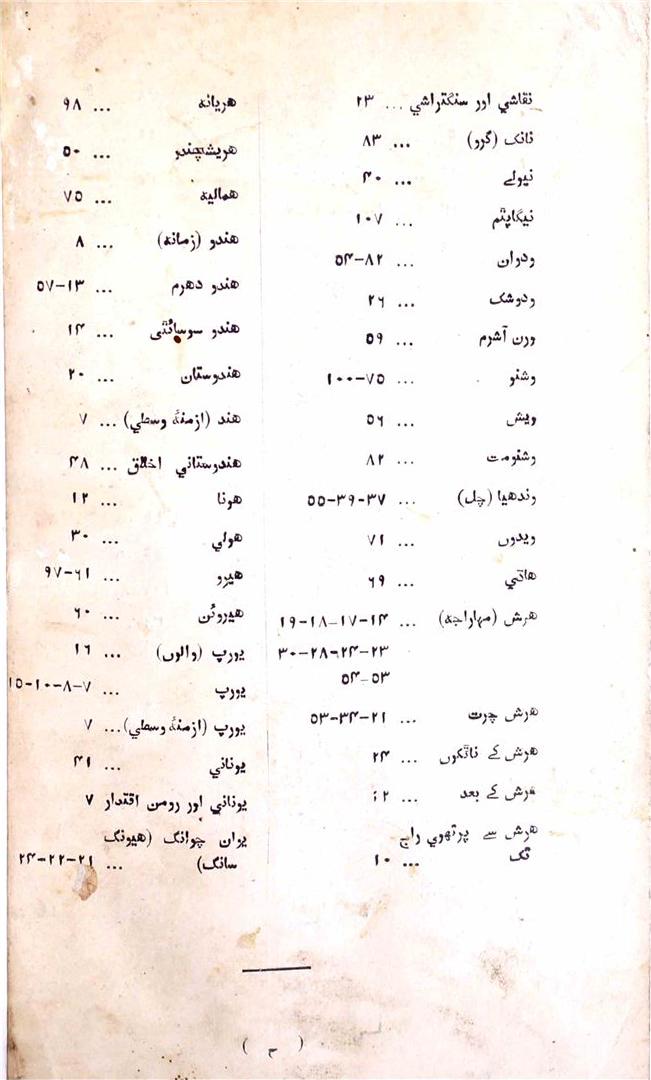 نقاشي اور سنگتراشي ... ۲۳
نانک (گرو) ... ۸۳
نیولے ... ۴۰
نیگاپٹم ... ۱۰۷
ودوان ... ۸۲-۵۴
ودوشک ... ۲۶
ورن آشرم ... ۵۹
وشنو ... ۷۵-۱۰۰
ویش ... ۵۶
وشنومت ... ۸۲
وندھیا (چل) ... ۳۷-۳۹-۵۵
ویدوں ... ۷۱
ھاتي ... ۶۹
ھرش (مہاراجہ) ... ۱۴-۱۷-۱۸-۱۹
۲۳-۲۴-۲۸-۳۰
۵۳-۵۴
ھرش چرت ... ۲۱-۳۴-۵۳
ھرش کے ناٹکوں ... ۲۴
ھرش کے بعد ... ۱۲
ھرش سے پرتھوي راج
تک ... ۱۰
ھریانہ ... ۹۸
ھریشچندو ... ۵۰
ھمالیہ ... ۷۵
ھندو (زمانہ) ... ۸
ھندو دھرم ... ۱۳-۵۷
ھندو سوسائٹی ... ۱۴
ھندوستان ... ۲۰
ھند (ازمنۂ وسطي) ... ۷
ھندوستاني اخلاق ... ۴۸
ھونا ... ۱۲
ھولي ... ۳۰
ھیرو ... ۶۱-۹۷
ھیروئن ... ۶۰
یورپ (والوں) ... ۱۶
یورپ ... ۷-۸-۱۰-۱۵
یورپ (ازمنۂ وسطي) ... ۷
یوناني ... ۴۱
یوناني اور رومن اقتدار ۷
یوان چوانگ (ھیونگ
سانگ) ... ۲۱-۲۲-۲۴
( ح )